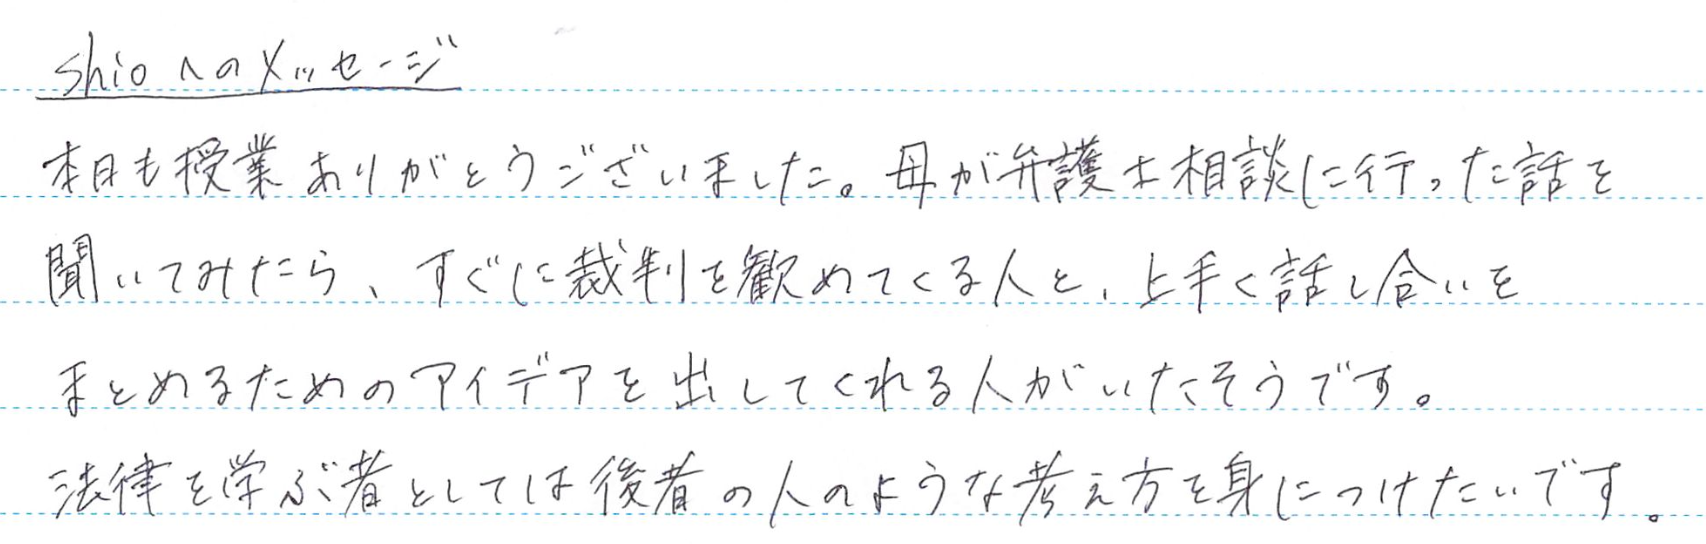 shioへのメッセージ
本日も授業ありがとうございました。母が弁護士相談に行った話を
聞いてみたら、すぐに裁判を歓めてくる人と、上手く話し合いを
まとめるためのアイデアを出してくれる人がいたそうです。
法律を学ぶ者としては後者の人のような考え方を身につけたいです。